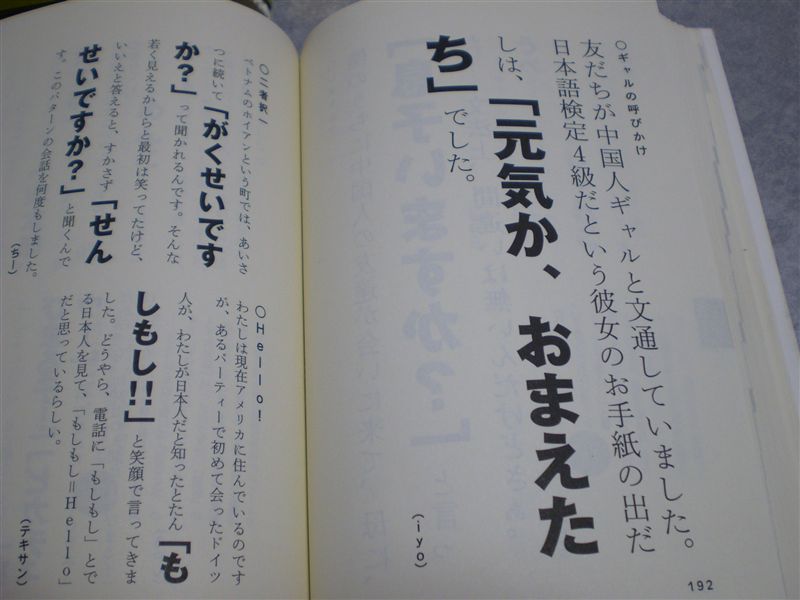 ○ギャルの呼びかけ
友だちが中国人ギャルと文通していました。
日本語検定4級だという彼女のお手紙の出だ
しは、「元気か、おまえた
ち」でした。
(iyo)
192
○二者択一
ベトナムのホイアンという町では、あいさ
つに続いて「がくせいです
か?」って聞かれるんです。そんな
若く見えるかしらと最初は笑ってたけど、
いいえと答えると、すかさず「せん
せいですか?」と聞くんで
す。このパターンの会話を何度もしました。
(ちー)
○Hello!
わたしは現在アメリカに住んでいるのです
が、あるパーティーで初めて会ったドイツ
人が、わたしが日本人だと知ったとたん「も
しもし!!」と笑顔で言ってきま
した。どうやら、電話に「もしもし」とで
る日本人を見て、「もしもし=Hello」
だと思っているらしい。
(テキサン)